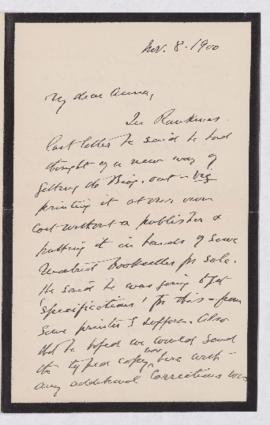 Nov. 8. 1900
My dear Anna,
In Rankines
last letter he said he had
thought of a new way of
getting the Biog. out – viz
printing it at our own
cost without a publisher &
putting it in hands of some
Bookseller for sale.
He said he was going to get
'specifications' for this – from
some printer I suppose. Also
that he hoped we would send
the typed copy now here with
any additional corrections we